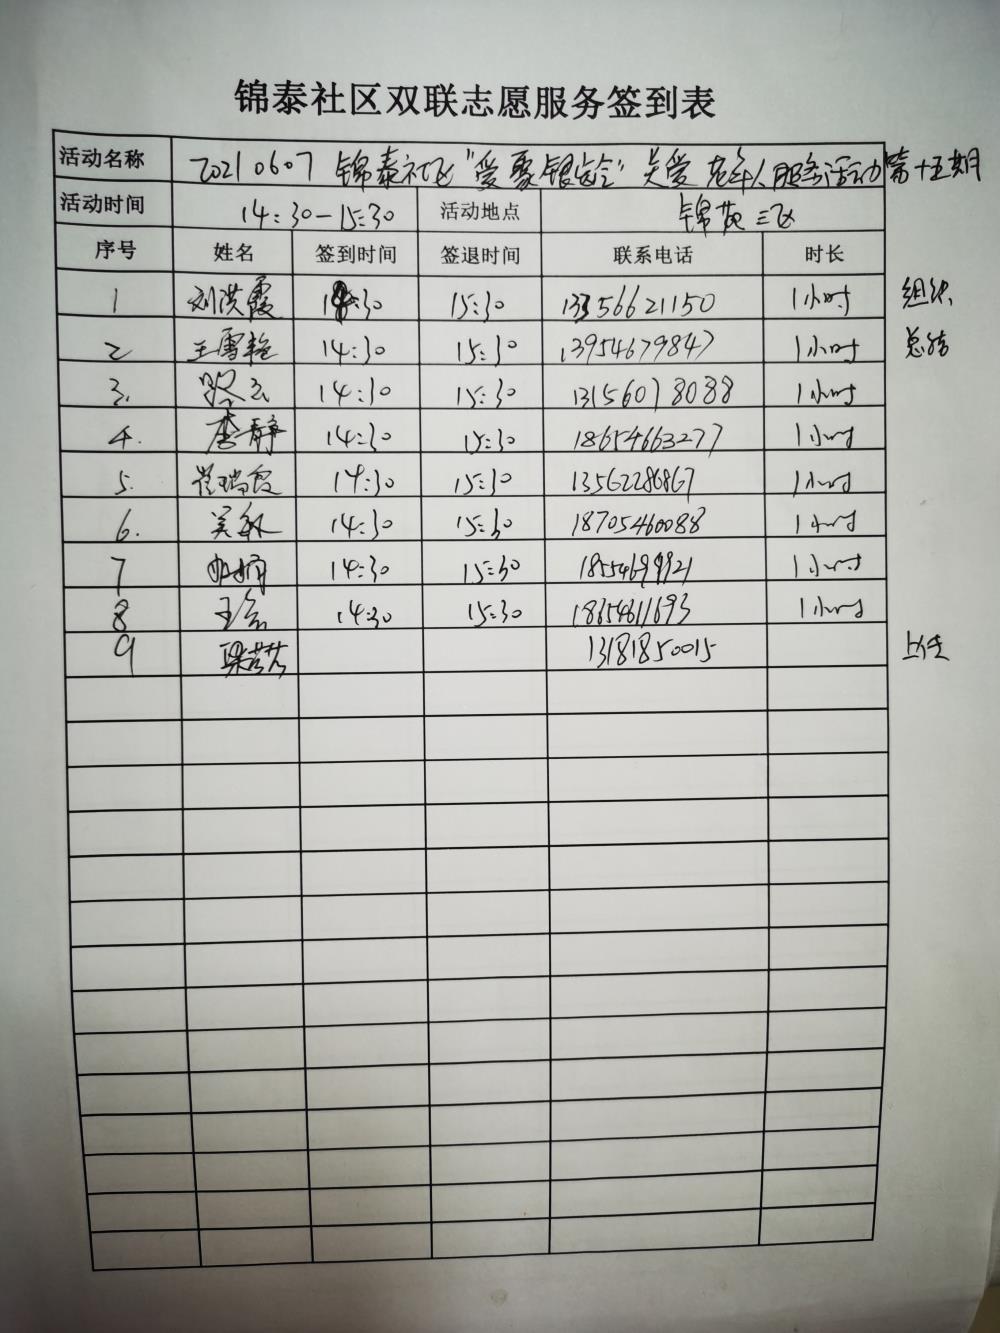 锦泰社区双联志愿服务签到表
活动名称 20210607 锦泰社区"爱聚银龄"关爱老年人服务活动第十五期
活动时间 14:30-15:30 活动地点 锦苑三区
序号 姓名 签到时间 签退时间 联系电话 时长
1 刘洪霞 14:30 15:30 13356621150 1小时 组织
2 王雪艳 14:30 15:30 13954679847 1小时 总结
3. 14:30 15:30 13156078088 1小时
4. 李静 14:30 15:30 18654663277 1小时
5. 崔瑞霞 14:30 15:30 13562286867 1小时
6. 吴敏 14:30 15:30 18705460088 1小时
7 14:30 15:30 1小时
8 14:30 15:30 1小时
9 梁芸芸 13181850015 上传